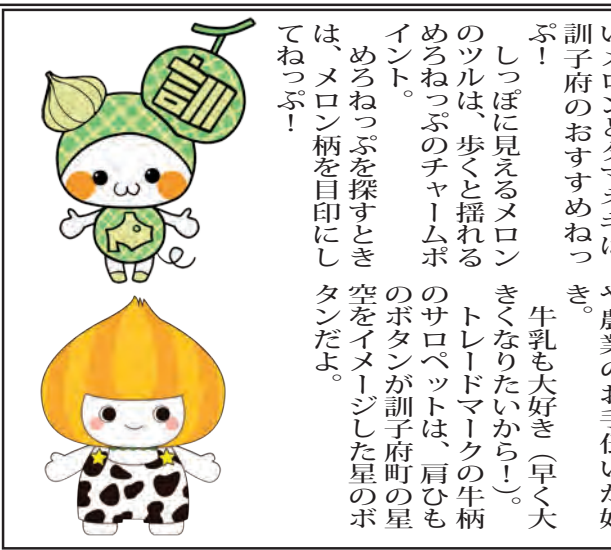 訓子府のおすすめねっ
ぷ！
しっぽに見えるメロン
のツルは、歩くと揺れる
めろねっぷのチャームポ
イント。
めろねっぷを探すとき
は、メロン柄を目印にし
てねっぷ！
農業のお手伝いが好
き。
牛乳も大好き（早く大
きくなりたいから！）。
トレードマークの牛柄
のサロペットは、肩ひも
のボタンが訓子府町の星
空をイメージした星のボ
タンだよ。
訓